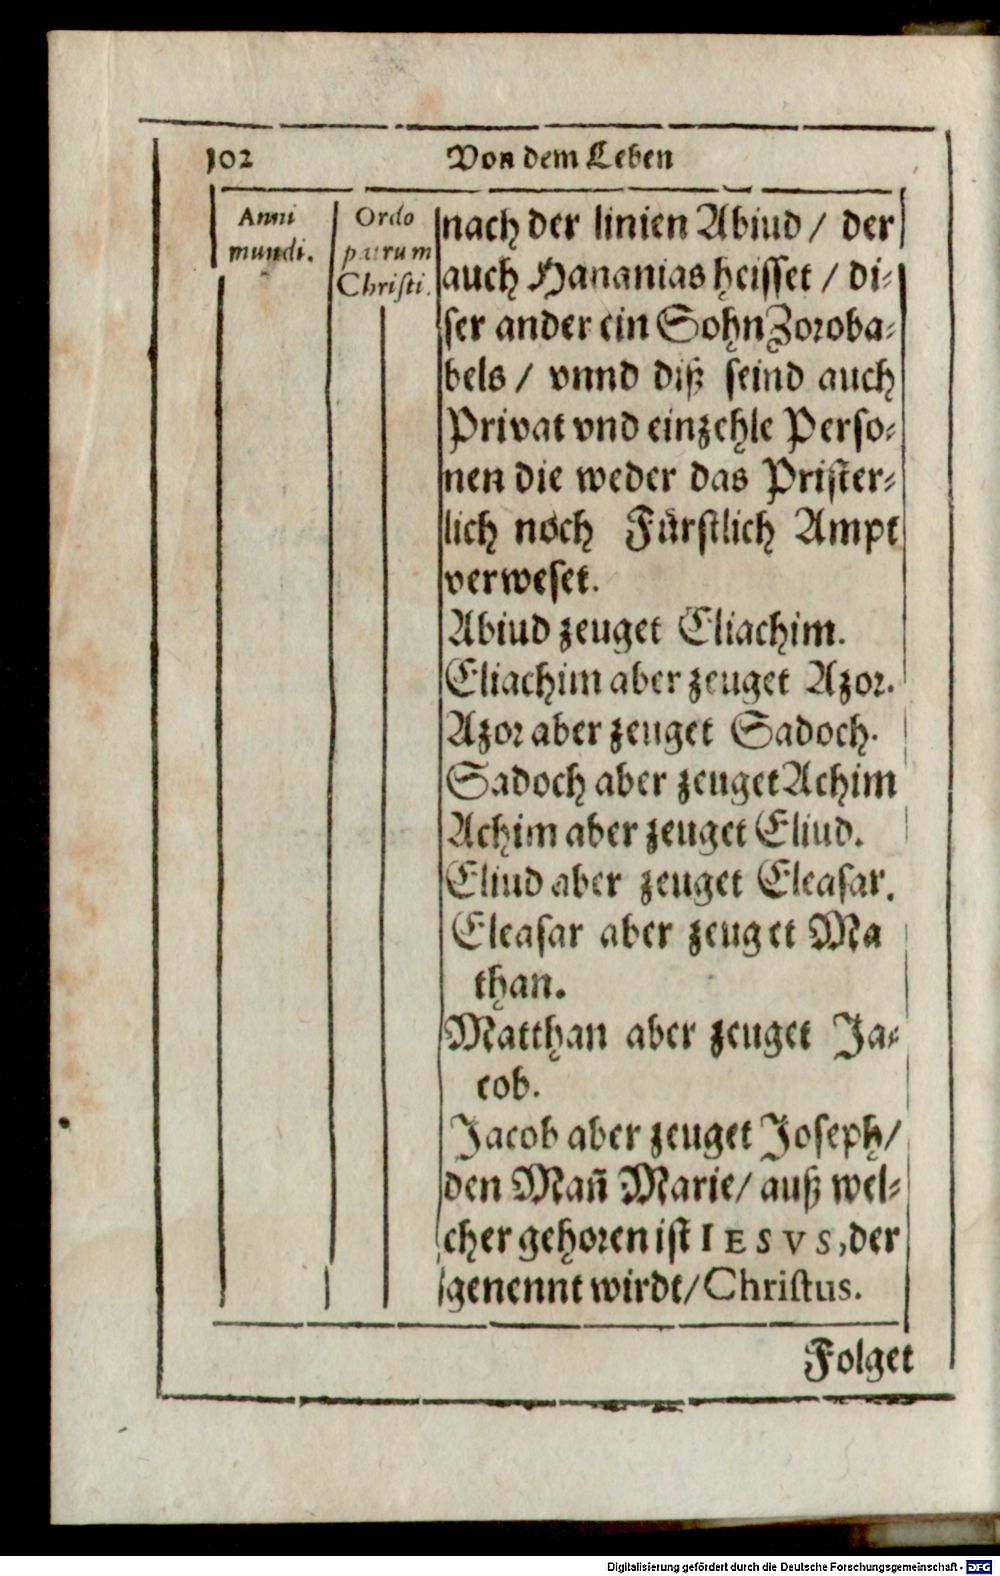 102
Von dem Leben
Anni
mundi.
Ordo
patrum
Christi.
nach der linien Abiud / der
auch Hananias heisset / di-
ser ander ein Sohn Zoroba-
bels / vnnd diß seind auch
Privat vnd einzehle Perso-
nen die weder das Prister-
lich noch Fürstlich Ampt
verweset.
Abiud zeuget Eliachim.
Eliachim aber zeuget Azor.
Azor aber zeuget Sadoch.
Sadoch aber zeuget Achim
Achim aber zeuget Eliud.
Eliud aber zeuget Eleasar.
Eleasar aber zeuget Ma
than.
Matthan aber zeuget Ja-
cob.
Jacob aber zeuget Joseph/
den Mañ Marie/ auß wel-
cher gehoren ist IESVS, der
genennt wirdt/ Christus.
Folget
Digitalisierung gefördert durch die Deutsche Forschungsgemeinschaft - DFG